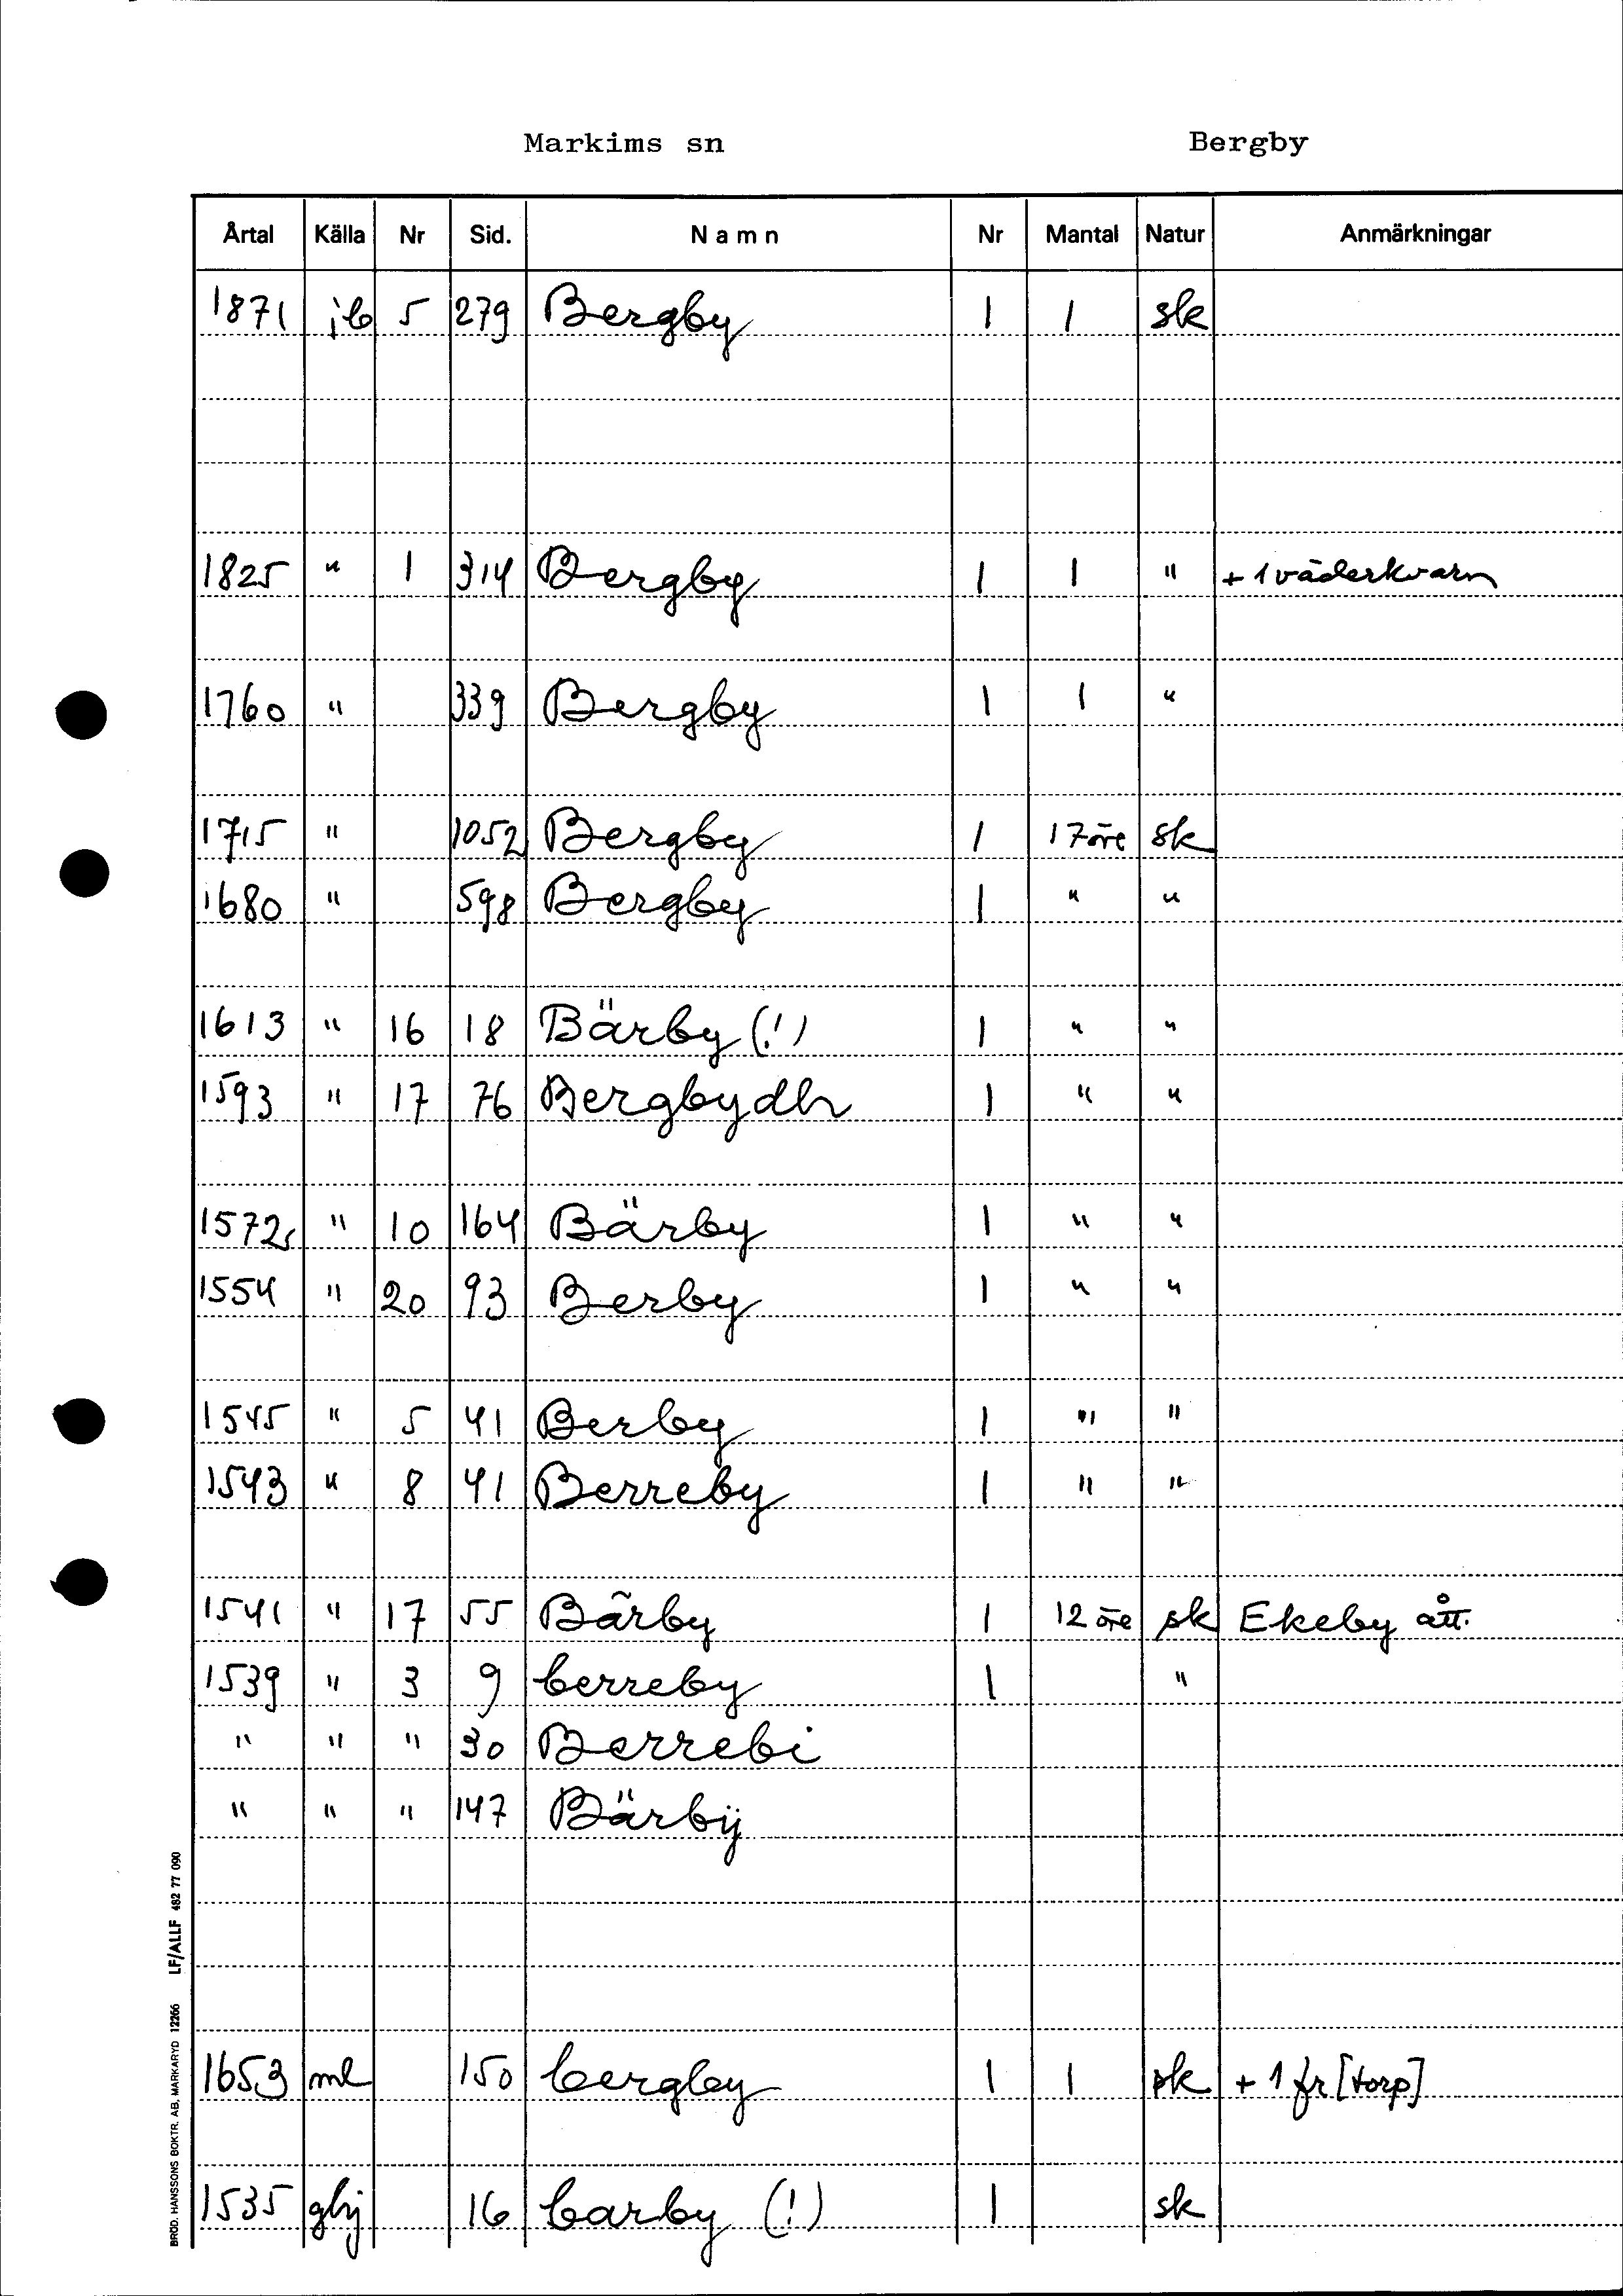 Markims sn Bergby
Årtal Källa Nr Sid. Namn Nr Mantal Natur Anmärkningar
1871 jb 5 279 Bergby 1 1 sk
1825 " 1 314 Bergby 1 1 " + 1 väderkvarn
1760 " 339 Bergby 1 1 "
1715 " 1052 Bergby 1 17 öre sk
1680 " 598 Bergby 1 " "
1613 " 16 18 Bärby (!) 1 " "
1593 " 17 76 Bergbydh 1 " "
1572 " 10 164 Bärby 1 " "
1554 " 20 93 Berby 1 " "
1545 " 5 41 Berby 1 " "
1543 " 8 41 Berreby 1 " "
1541 " 17 55 Bãrby 1 12 öre sk Ekeby ått.
1539 " 3 9 berreby 1 "
" " " 30 Berrebi
" " " 147 Bärbÿ
1653 ml 150 bergby 1 1 sk + 1 fr [torp]
1535 ghj 16 barby (!) 1 sk
BRÖD. HANSSONS BOKTR. AB, MARKARYD 12266 LF/ALLF 482 77 090